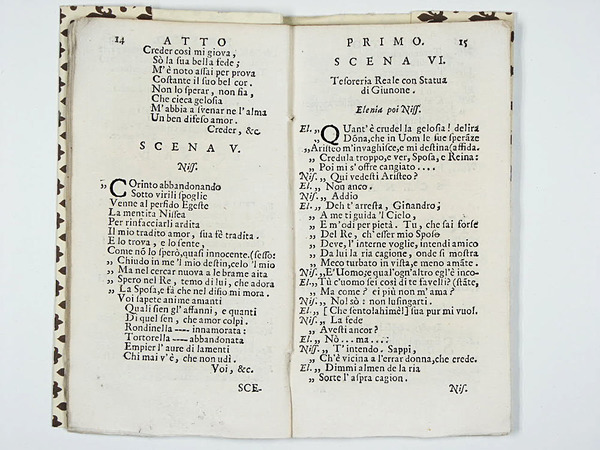 14 ATTO
Creder così mi giova,
Sò la sua bella fede;
M'è noto assai per prova
Costante il suo bel cor.
Non lo sperar, non fia,
Che cieca gelosia
M'abbia a svenar ne l'alma
Un ben difeso amor.
Creder, &c.
SCENA V.
Niss.
„ COrinto abbandonando
Sotto virili spoglie
Venne al perfido Egeste
La mentita Nissea
Per rinfacciarli ardita
Il mio tradito amor, sua fè tradita.
E lo trova, e lo sente,
Come nô lo sperò, quasi innocente. (sesso:
„ Chiudo in me 'l mio destin, celo 'l mio
„ Ma nel cercar nuova a le brame aita
„ Spero nel Re, temo di lui, che adora
„ La Sposa, e fà che nel disio mi mora.
Voi sapete anime amanti
Quali sien gl'affanni, e quanti
Di quel sen, che amor colpì.
Rondinella ---- innamorata:
Tortorella ---- abbandonata
Empier l'aure di lamenti
Chi mai v'è, che non udì.
Voi, &c.
SCE-
PRIMO. 15
SCENA VI.
Tesoreria Reale con Statua
di Giunone.
Elenia poi Niss.
El. „ QUant'è crudel la gelosia! delira
„ Dôna, che in Uom le sue sperâze
„ Aristeo m'invaghisce, e mi destina (affida.
„ Credula troppo, e ver, Sposa, e Reina:
„ Poi mi s'offre cangiato ....
Nis. „ Qui vedesti Aristeo?
El. „ Non anco.
Nis. „ Addio
El. „ Deh t'arresta, Ginandro;
„ A me ti guida 'l Cielo,
„ E m'odi per pietà. Tu, che sai forse
„ Del Re, ch'esser mio Sposo
„ Deve, l'interne voglie, intendi amico
„ Da lui la ria cagione, onde si mostra
„ Meco turbato in vista, e meno amâte.
Nis. „ E' Uomo; e qual'ogn'altro egl'è inco-
El. „ Tù c'uomo sei così di te favelli? (stâte,
„ Ma come? ei più non m'ama?
Nis. „ No! sò: non lusingarti.
El. „ [Che sento! ahimè!] sua pur mi vuol.
Nis. „ La fede
„ Avesti ancor?
El. „ Nò... ma...:
Niss. „ T'intendo. Sappi,
„ Ch'è vicina a l'errar donna, che crede.
El. „ Dimmi almen de la ria
„ Sorte l'aspra cagion.
Nis.